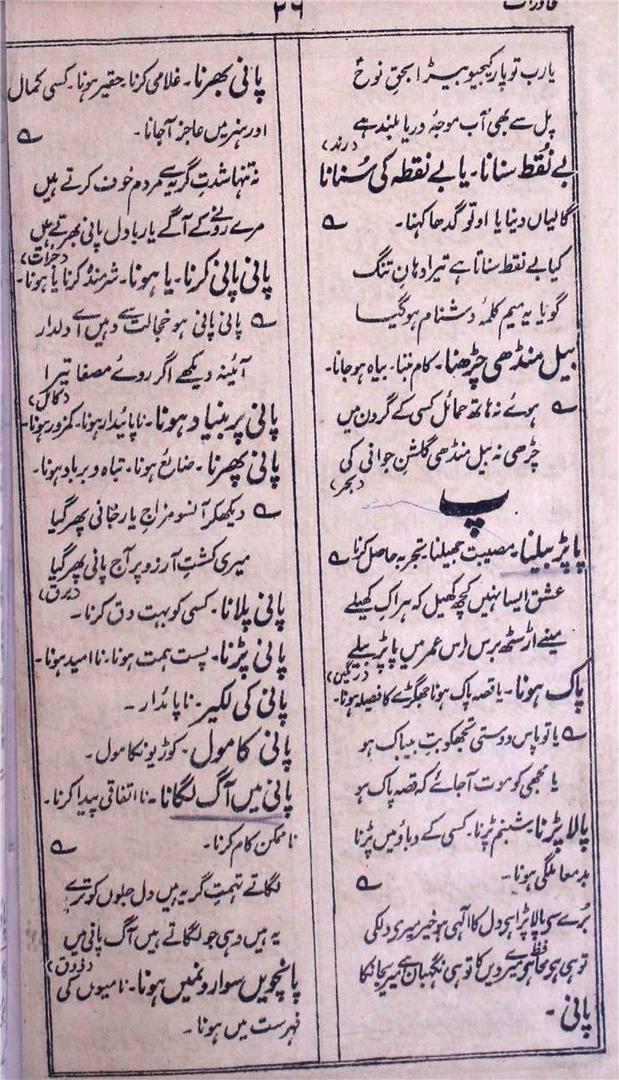 ۲۶
یارب تو پار کیجیو بیڑا بحقِ نوحؑ
پل سے بھی آب موجۂ دریا بلند ہے
(رند)
بے نُقط سنانا۔ یا بے نقطہ کی سُنانا
گالیاں دینا یا او تو گدھا کہنا۔
کیا بے نقط سناتا ہے تیرا دہانِ تنگ
گویا یہ میم کلمۂ دشنام ہو گیا
بیل منڈھی چڑھنا۔ کام بننا۔ بیاہ ہو جانا۔
ہوئے نہ ہاتھ حمائل کسی کے گردن میں
چڑھی نہ بیل منڈھی گلشنِ جوانی کی
(بحر)
پ
پاپڑ بیلنا۔ مصیبت جھیلنا۔ تجربہ حاصل کرنا
عشق ایسا نہیں کچھ کھیل کہ ہر اک کھیلے
مینے اڑسٹھ برس اس عمر میں پاپڑ بیلے
(رنگین)
پاک ہونا۔ یا قصہ پاک ہونا جھگڑے کا فیصلہ ہونا۔
یا تو پاس دوستی تجھکو بتِ بیباک ہو
یا مجھی کو موت آجائے کہ قصہ پاک ہو
پالا پڑنا۔ شبنم پڑنا۔ کسی کے دباؤ میں پڑنا
بدمعاملگی ہونا۔
بُرے سے پالا پڑا ہے دل کا الٰہی ہو خیر میری دل کی
تو ہی ہے حافظ میرے دیں کا تو ہی نگہبان ہے میرے جانکا
پانی۔
پانی بھرنا۔ غلامی کرنا۔ حقیر ہونا۔ کسی کمال
اور ہنر میں عاجز آجانا۔
نہ تنہا شدتِ گریہ سے مردم خوف کرتے ہیں
مرے رونے کے آگے یار بادل پانی بھرتے ہیں
(جرات)
پانی پانی کرنا۔ یا ہونا۔ شرمندہ کرنا یا ہونا۔
پانی پانی ہو خجالت سے وہیں اے دلدار
آئینہ دیکھے اگر روئے مصفا تیرا
(کامل)
پانی پر بنیاد ہونا۔ ناپائیدار ہونا۔ کمزور ہونا۔
پانی پھرنا۔ ضائع ہونا۔ تباہ و برباد ہونا۔
دیکھکر آنسو مزاجِ یار جانی پھر گیا
میری کشتِ آرزو پر آج پانی پھر گیا
(برق)
پانی پلانا۔ کسی کو بہت دق کرنا۔
پانی پڑنا۔ پست ہمت ہونا۔ ناامید ہونا۔
پانی کی لکیر۔ ناپائدار۔
پانی کا مول۔ کوڑیونکا مول۔
پانی میں آگ لگانا۔ نااتفاقی پیدا کرنا۔
ناممکن کام کرنا۔
لگاتے تہمتِ گریہ ہیں دل جلوں کو ترے
یہ ہیں وہی جو لگاتے ہیں آگ پانی میں
(ذوق)
پانچویں سوارونمیں ہونا۔ نامیوں کی
فہرست میں ہونا۔